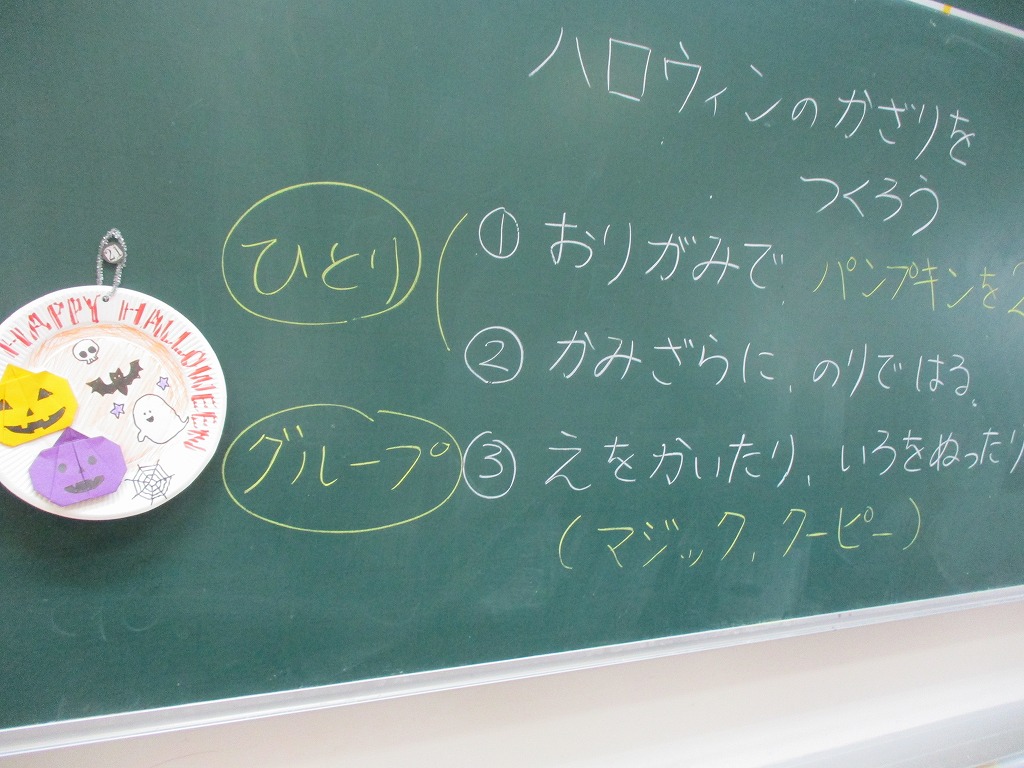 ハロウィンのかざりを
つくろう
ひとり
① おりがみで、パンプキンを2
② かみざらに、のりではる。
グループ
③ えをかいたり、いろをぬったり
(マジック、クーピー)
HAPPY HALLOWEEN